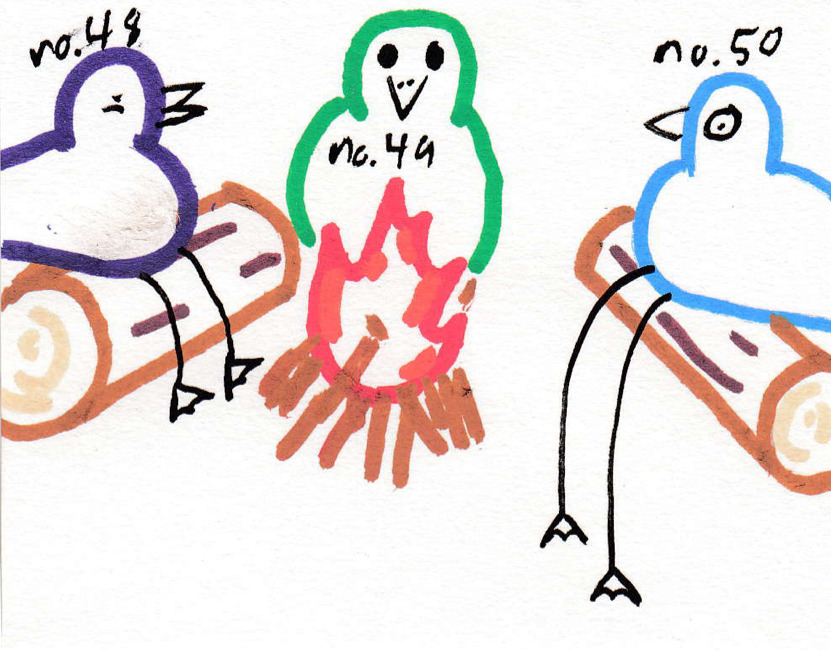 no.48
no.49
no.50